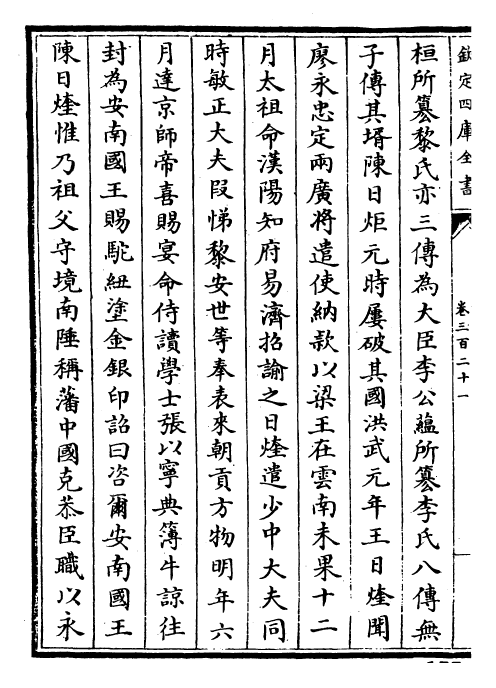 欽定四庫全書
卷三百二十一
桓所簒黎氏亦三傳為大臣李公藴所簒李氏八傳無
子傳其壻陳日炬元時屢破其國洪武元年王日煃聞
廖永忠定兩廣將遣使納款以梁王在雲南未果十二
月太祖命漢陽知府易濟招諭之日煃遣少中大夫同
時敏正大夫叚悌黎安世等奉表來朝貢方物明年六
月達京師帝喜賜宴命侍讀學士張以寧典簿牛諒往
封為安南國王賜駝紐塗金銀印詔曰咨爾安南國王
陳日煃惟乃祖父守境南陲稱藩中國克恭臣職以永